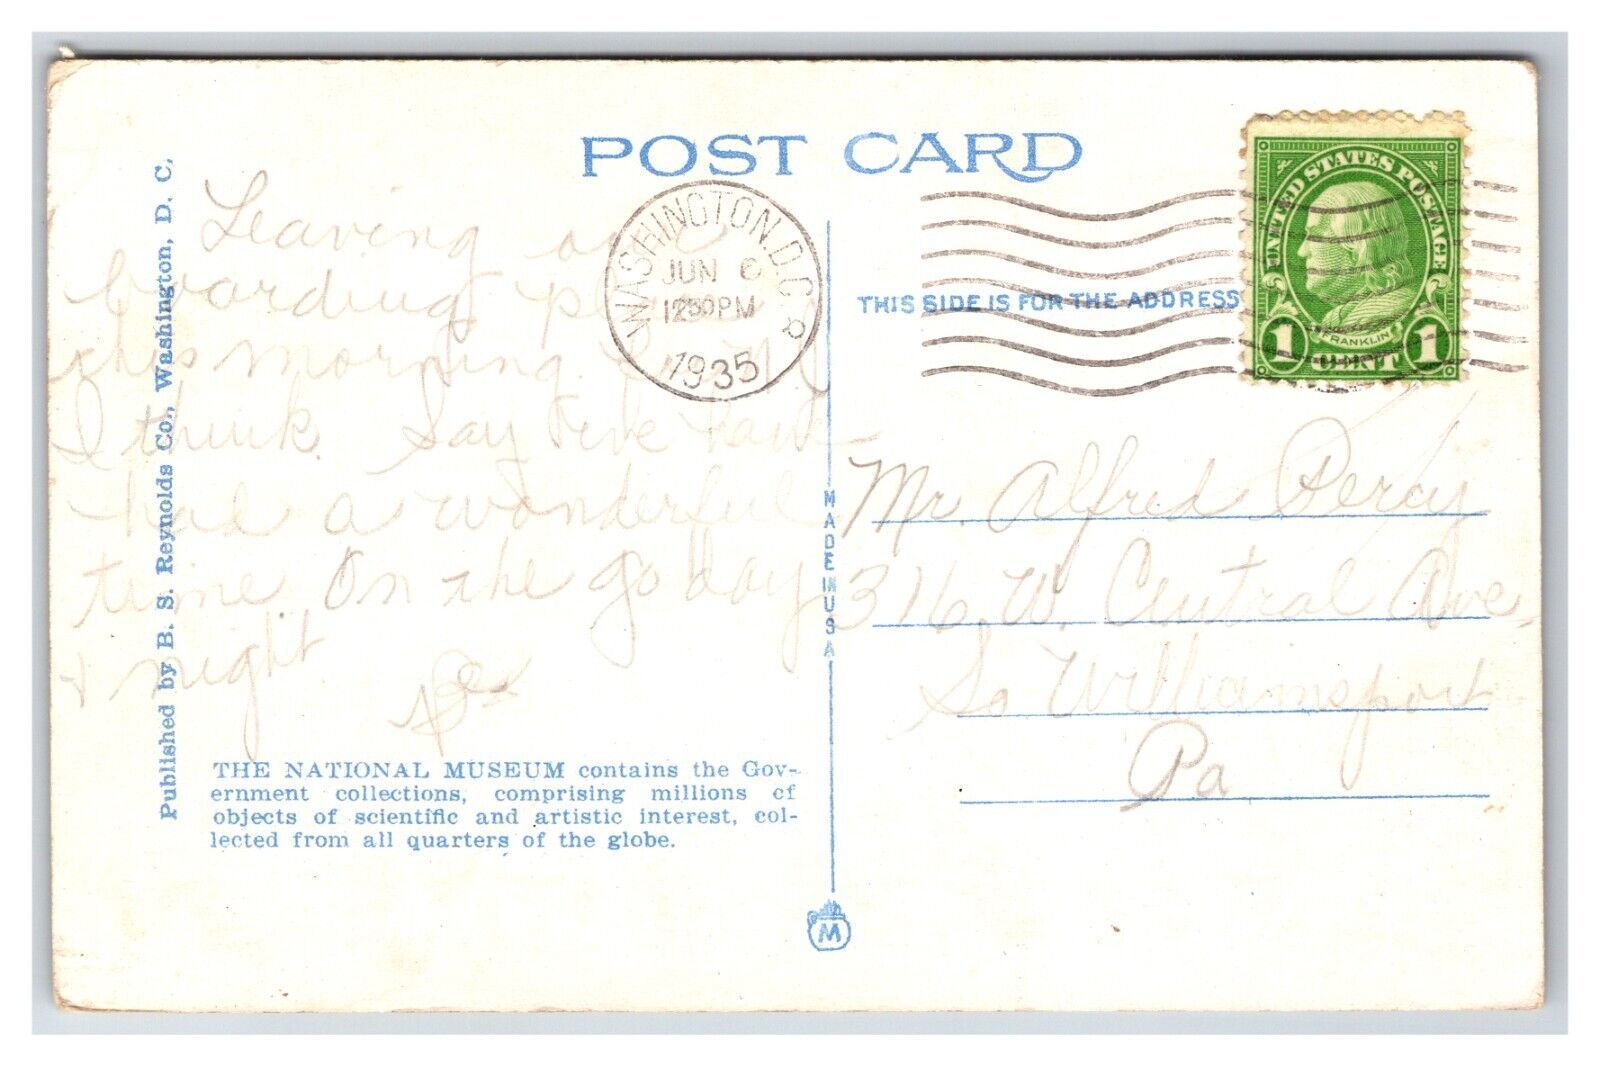 POST CARD
THIS SIDE IS FOR THE ADDRESS
Published by B. S. Reynolds Co., Washington, D. C.
WASHINGTON, D.C.
JUN 6
12 30 PM
1935
UNITED STATES POSTAGE
FRANKLIN
1 CENT 1
Leaving our
boarding
this morning.
I think. Say I've have
had a wonderful
time. On the go day
& night
THE NATIONAL MUSEUM contains the Gov-
ernment collections, comprising millions of
objects of scientific and artistic interest, col-
lected from all quarters of the globe.
MADE IN U S A
M
Mr. Alfred Percy
316 W. Central Ave
So Williamsport
Pa